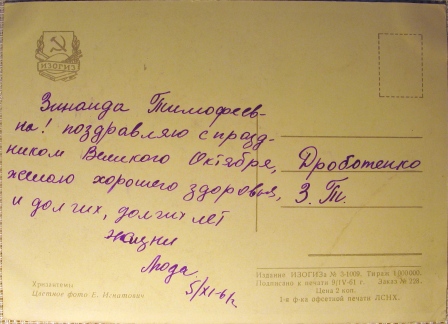 ИЗОГИЗ
Зинаида Тимофеев-
на! поздравляю с празд-
ником Великого Октября,
желаю хорошего здоровья,
и долгих, долгих лет
жизни
Люда
5/XI-61г.
Дроботенко
З. Т.
Хризантемы
Цветное фото Е. Игнатович
Издание ИЗОГИЗа № 3-1009. Тираж 1 000 000.
Подписано в печать 9/IV-61 г. Заказ № 228.
Цена 2 коп.
1-я ф-ка офсетной печати ЛСНХ.